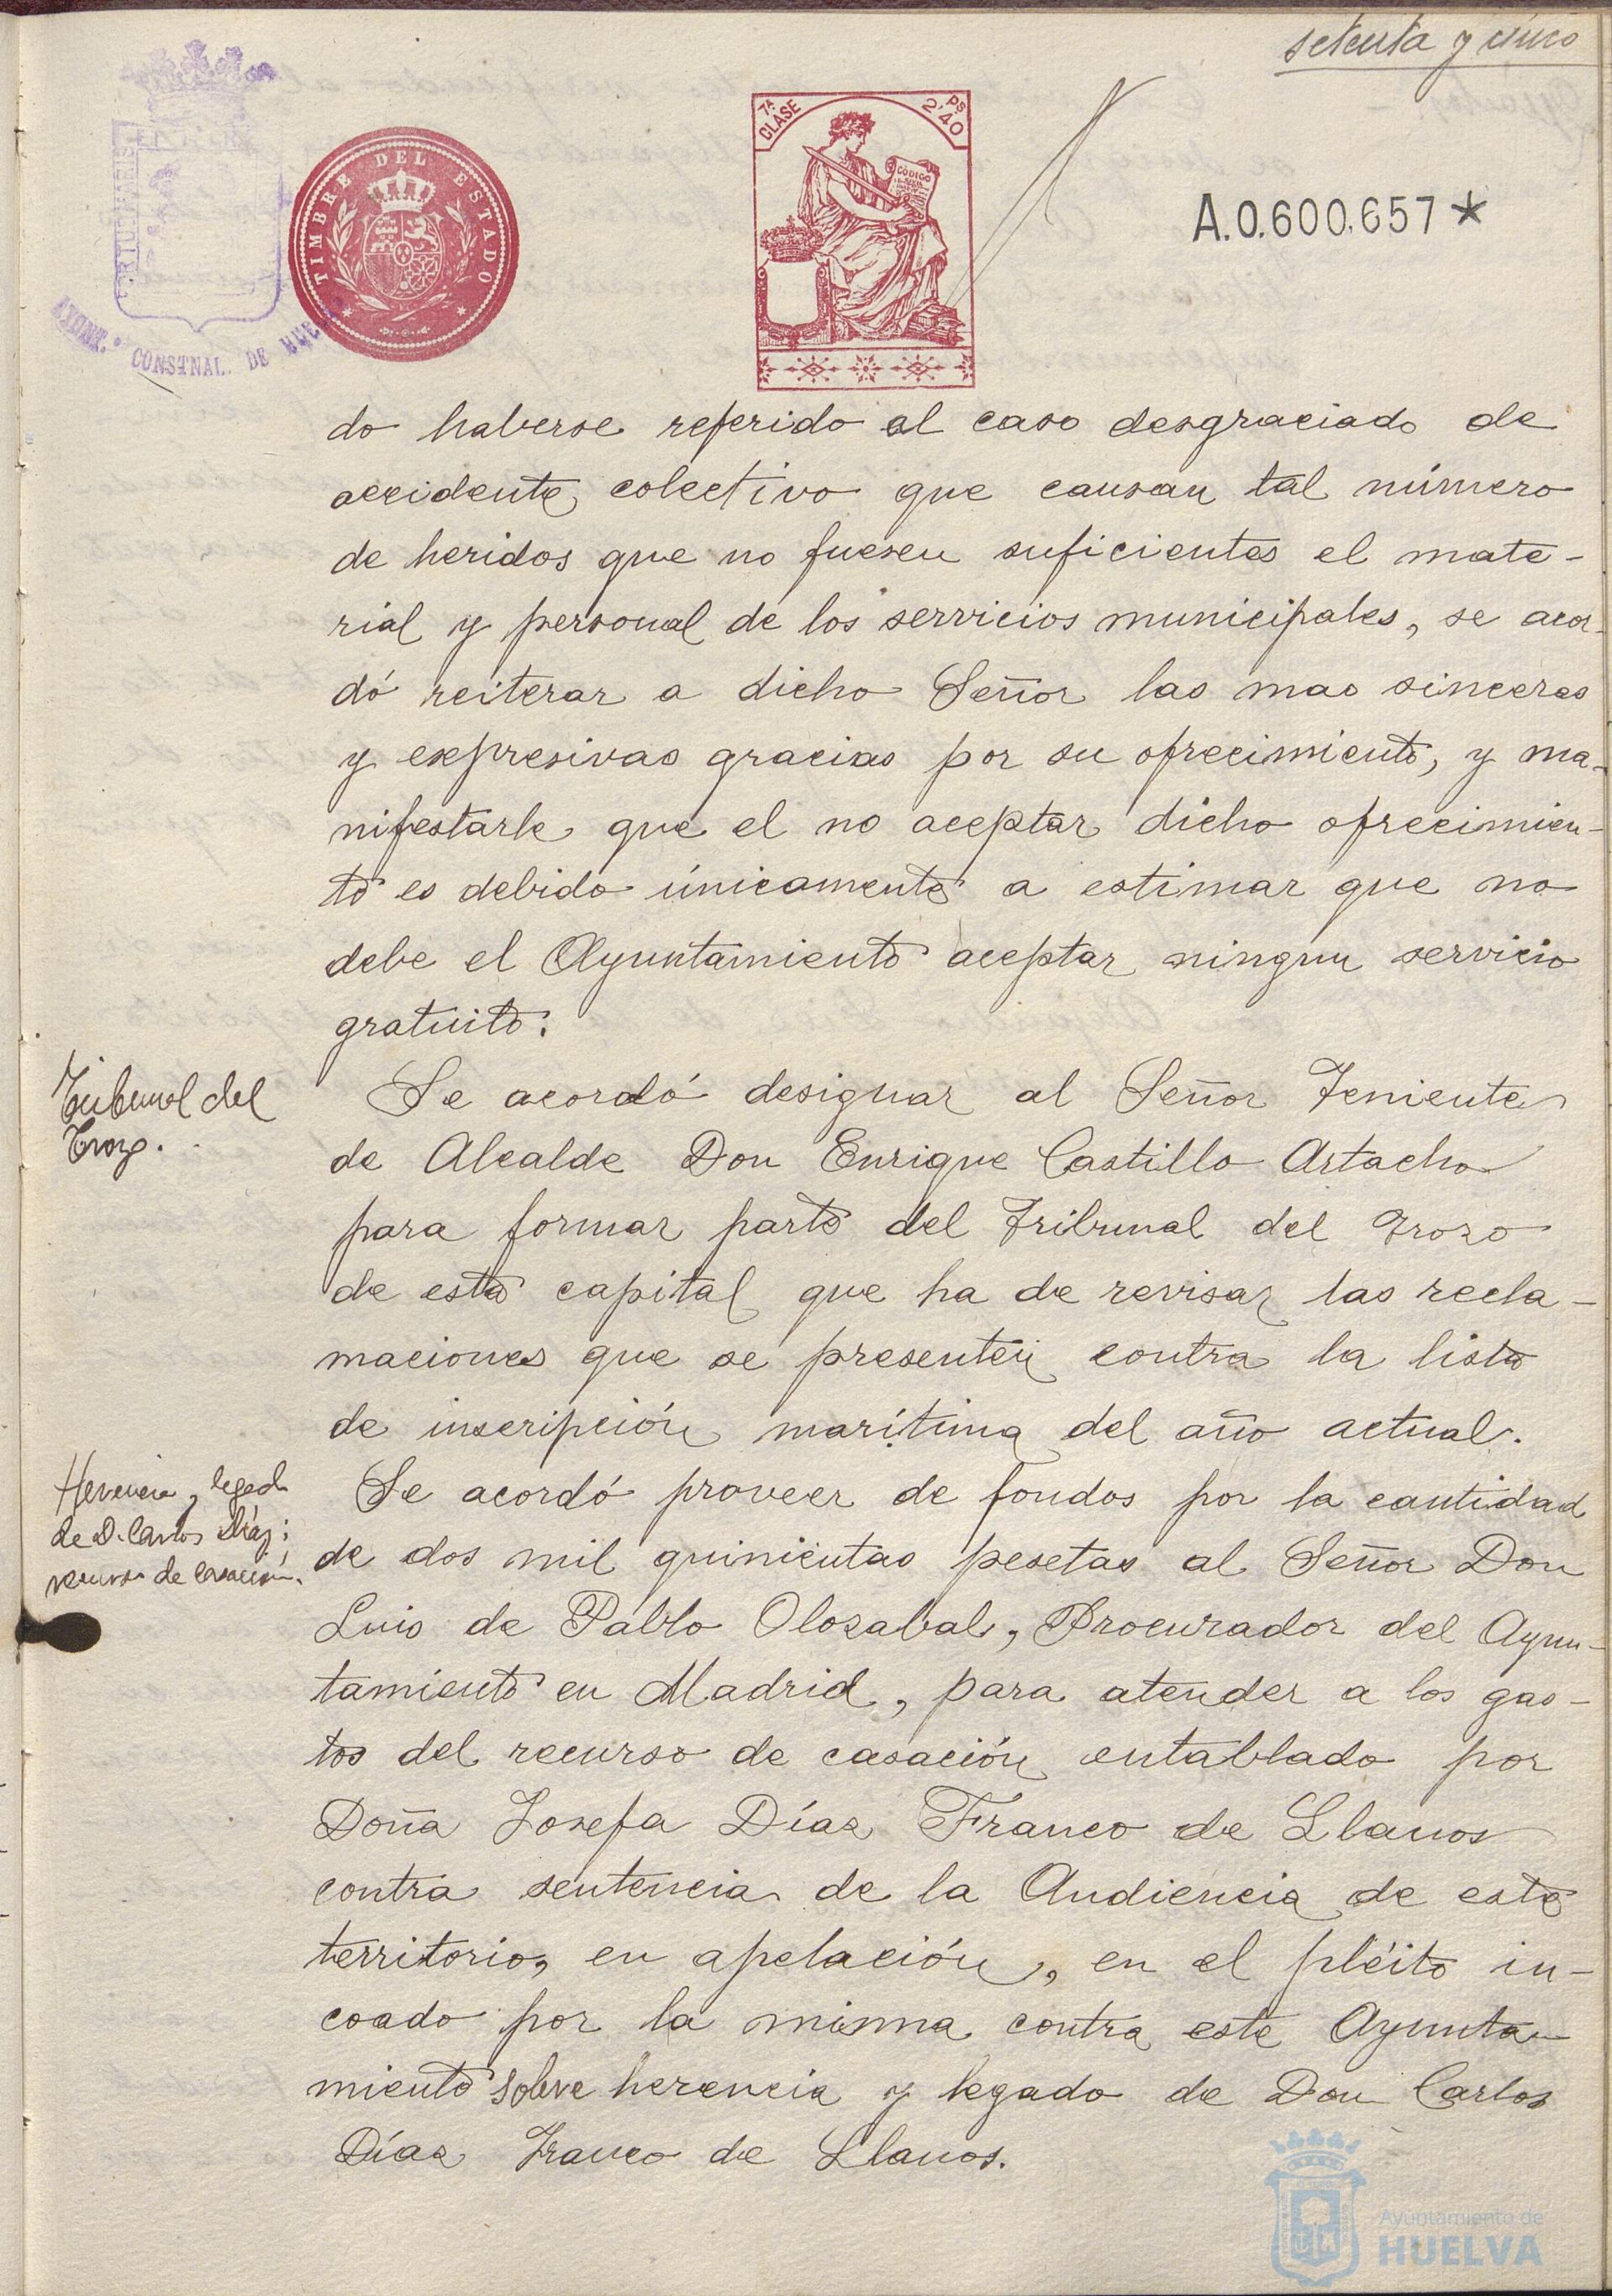 setenta y cinco
7ª CLASE
Ps 2'40
CÓDIGO
TIMBRE DEL ESTADO
A.0.600.657*
CONST NAL. DE
do haberse referido al caso desgraciado de
accidente colectivo que causan tal número
de heridos que no fuesen suficientes el mate-
rial y personal de los servicios municipales, se acor-
dó reiterar a dicho Señor las mas sinceras
y expresivas gracias por su ofrecimiento, y ma-
nifestarle que el no aceptar dicho ofrecimien-
to es debido únicamente a estimar que no
debe el Ayuntamiento aceptar ningun servicio
gratuito.
Tribunal del
Trozo.
Se acordó designar al Señor Teniente
de Alcalde Don Enrique Castillo Artacho
para formar parte del Tribunal del Trozo
de esta capital que ha de revisar las recla-
maciones que se presenten contra la lista
de inscripción marítima del año actual.
Herencia y legado
de D. Carlos Díaz;
recurso de casación.
Se acordó proveer de fondos por la cantidad
de dos mil quinientas pesetas al Señor Don
Luis de Pablo Olozabal, Procurador del Ayun-
tamiento en Madrid, para atender a los gas-
tos del recurso de casación entablado por
Doña Josefa Díaz Franco de Llanos
contra sentencia de la Audiencia de este
territorio, en apelación, en el pléito in-
coado por la misma contra este Ayunta-
miento sobre herencia y legado de Don Carlos
Díaz Franco de Llanos.
Ayuntamiento de
HUELVA